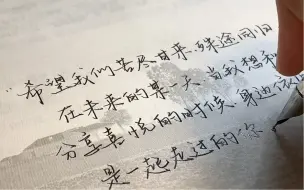 “希望我们苦尽甘来,殊途同归
在未来的某一天,当我想和
分享喜悦的时候,身边依
是一起走过的你